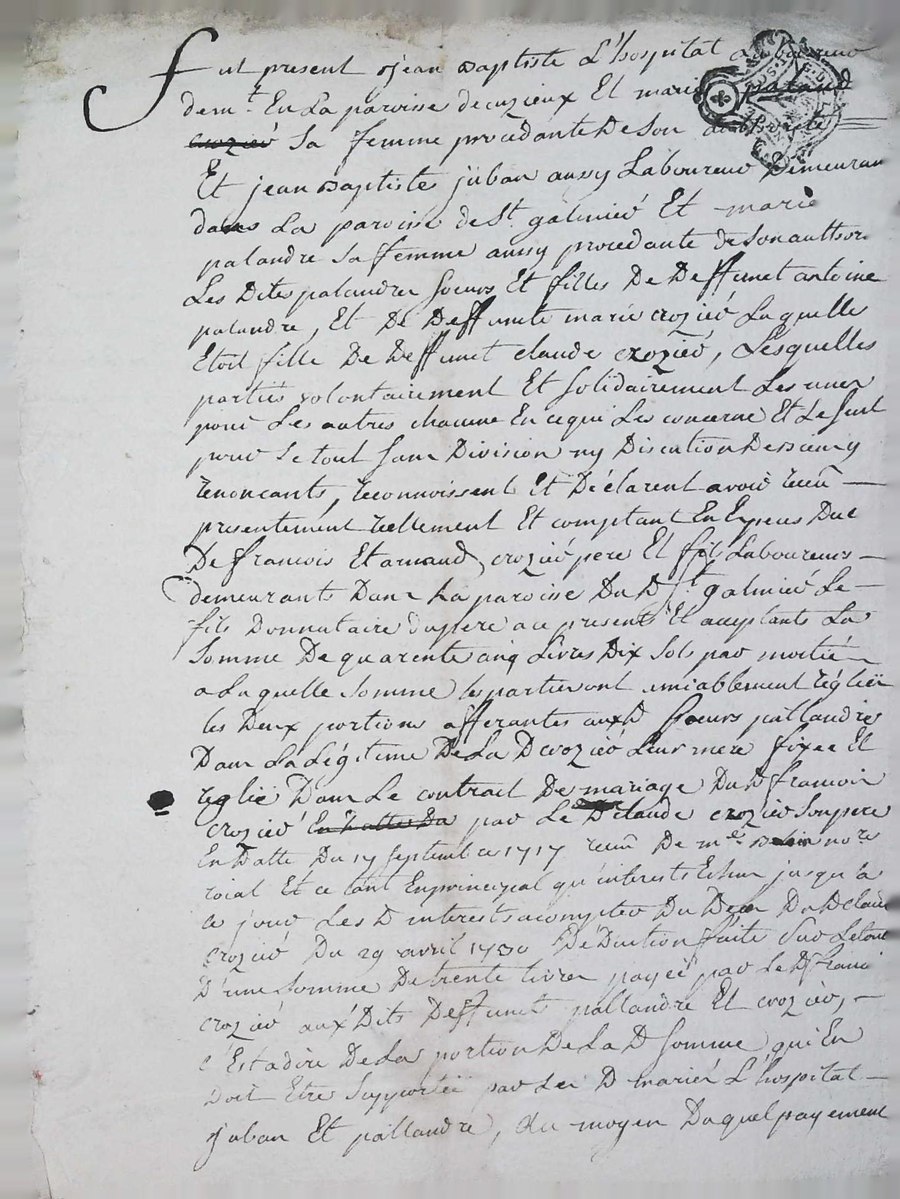 Fut present jean Baptiste L'hospital Laboureur
dem.t En La paroisse decuzieux Et marie paland
crozier Sa femme procédante De Son authorité
Et jean Baptiste juban aussy Laboureur Demeuran
dans La paroisse de St. galmier Et marie
palandre Sa femme aussy procedante deSonauthor
Les Dites palandre Soeurs Et filles De Deffunct antoine
palandre, Et De Deffuncte marie crozier Laquelle
Etoit fille De Deffunct claude crozier, Lesquelles
parties volontairement Et Solidairement Les unes
pour Les autres chacune En cequi Les concerne Et Le Seul
pour Le tout Sans Division ny Discution Dessiens y
renoncants, reconnoissent Et Déclarent avoir recu
presentement réellement Et comptant En Especes Duc
De francois Et arnaud crozier pere Et fils Laboureurs
demeurants Dans La paroisse Du D St. galmier Le
fils Donnataire Dupere ace presents Et acceptants La
Somme De quarente cinq Livres Dix Sols par moitié
a Laquelle Somme les parties ont amiablement réglée
les Deux portions afferantes aux D Soeurs pallandre
Dans La Légitime De La D crozier Leur mere fixée Et
réglée Dans Le contrait De mariage Du D francois
crozier En Datte Du par Le D claude crozier Sonpere
En Datte Du 17 Septembre 1717 recu De me no.re
roial Et ce tant Enprincipal qu'interests Echus jusqu'a
ce jour Les D interests acompter Du Deces Du D claude
crozier Du 29 avril 1730 Déduction faite Sur Letout
D'une Somme De trente Livres payée par Le D franc
crozier aux Dits Deffuncts pallandre Et crozier,
c'Estadire De La portion De La D Somme qui En
Doit Etre Supportée par Les D mariés L'hospital
juban Et pallandre, Au moyen Duquel payement